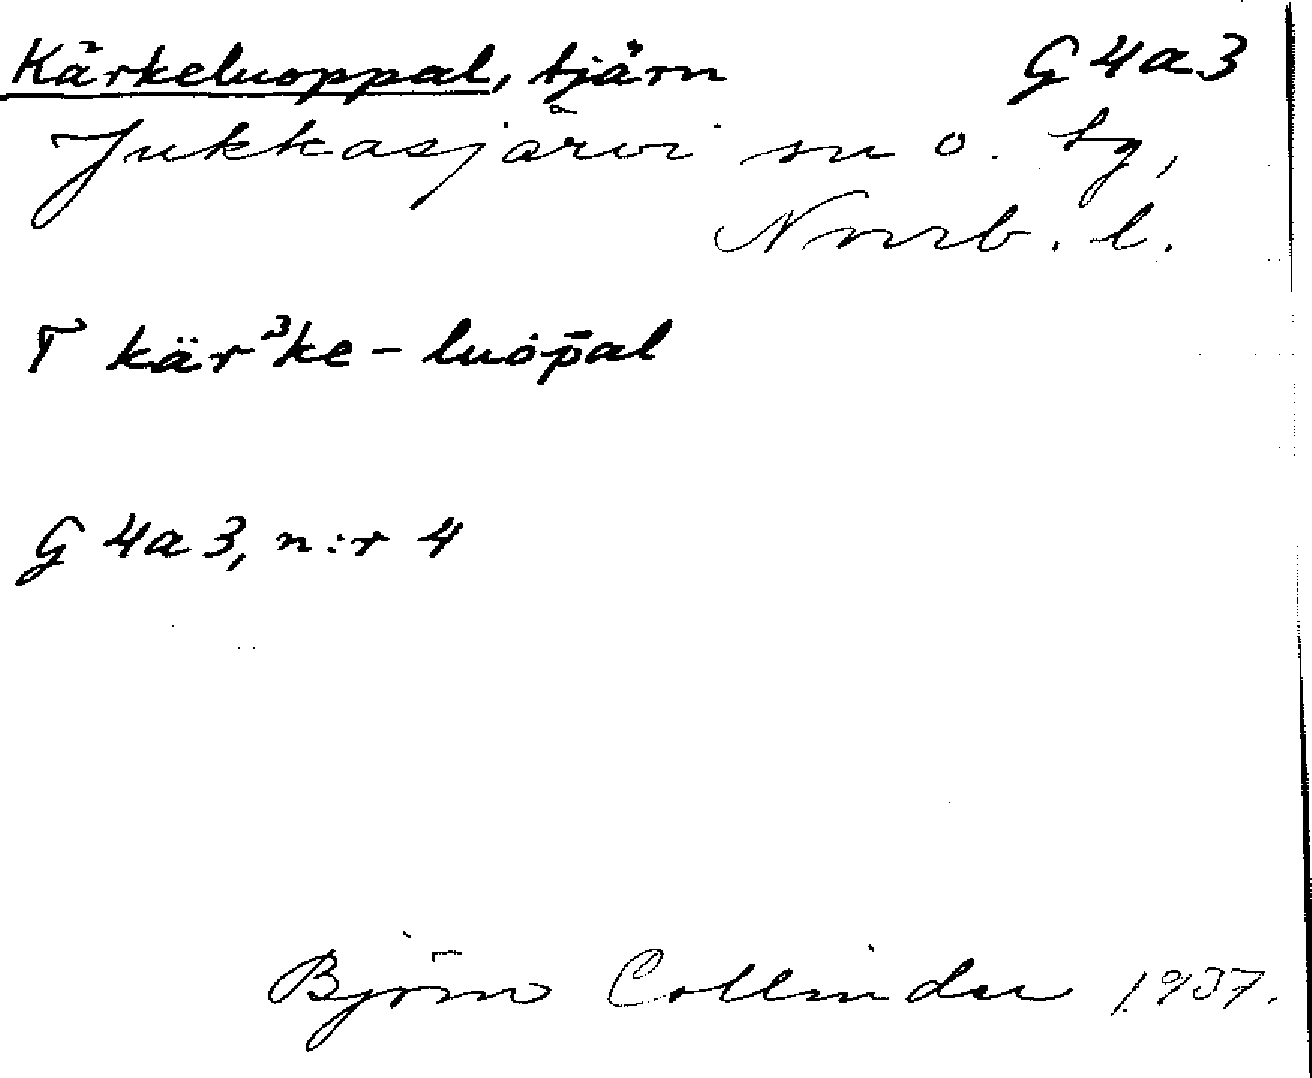 Kärkeluoppal, tjärn G 4a3
Jukkasjärvi sn o. tg,
Norrb. l.
T kärʒke-luȯp̄al
G 4a3, n:r 4
Björn Collinder 1937.